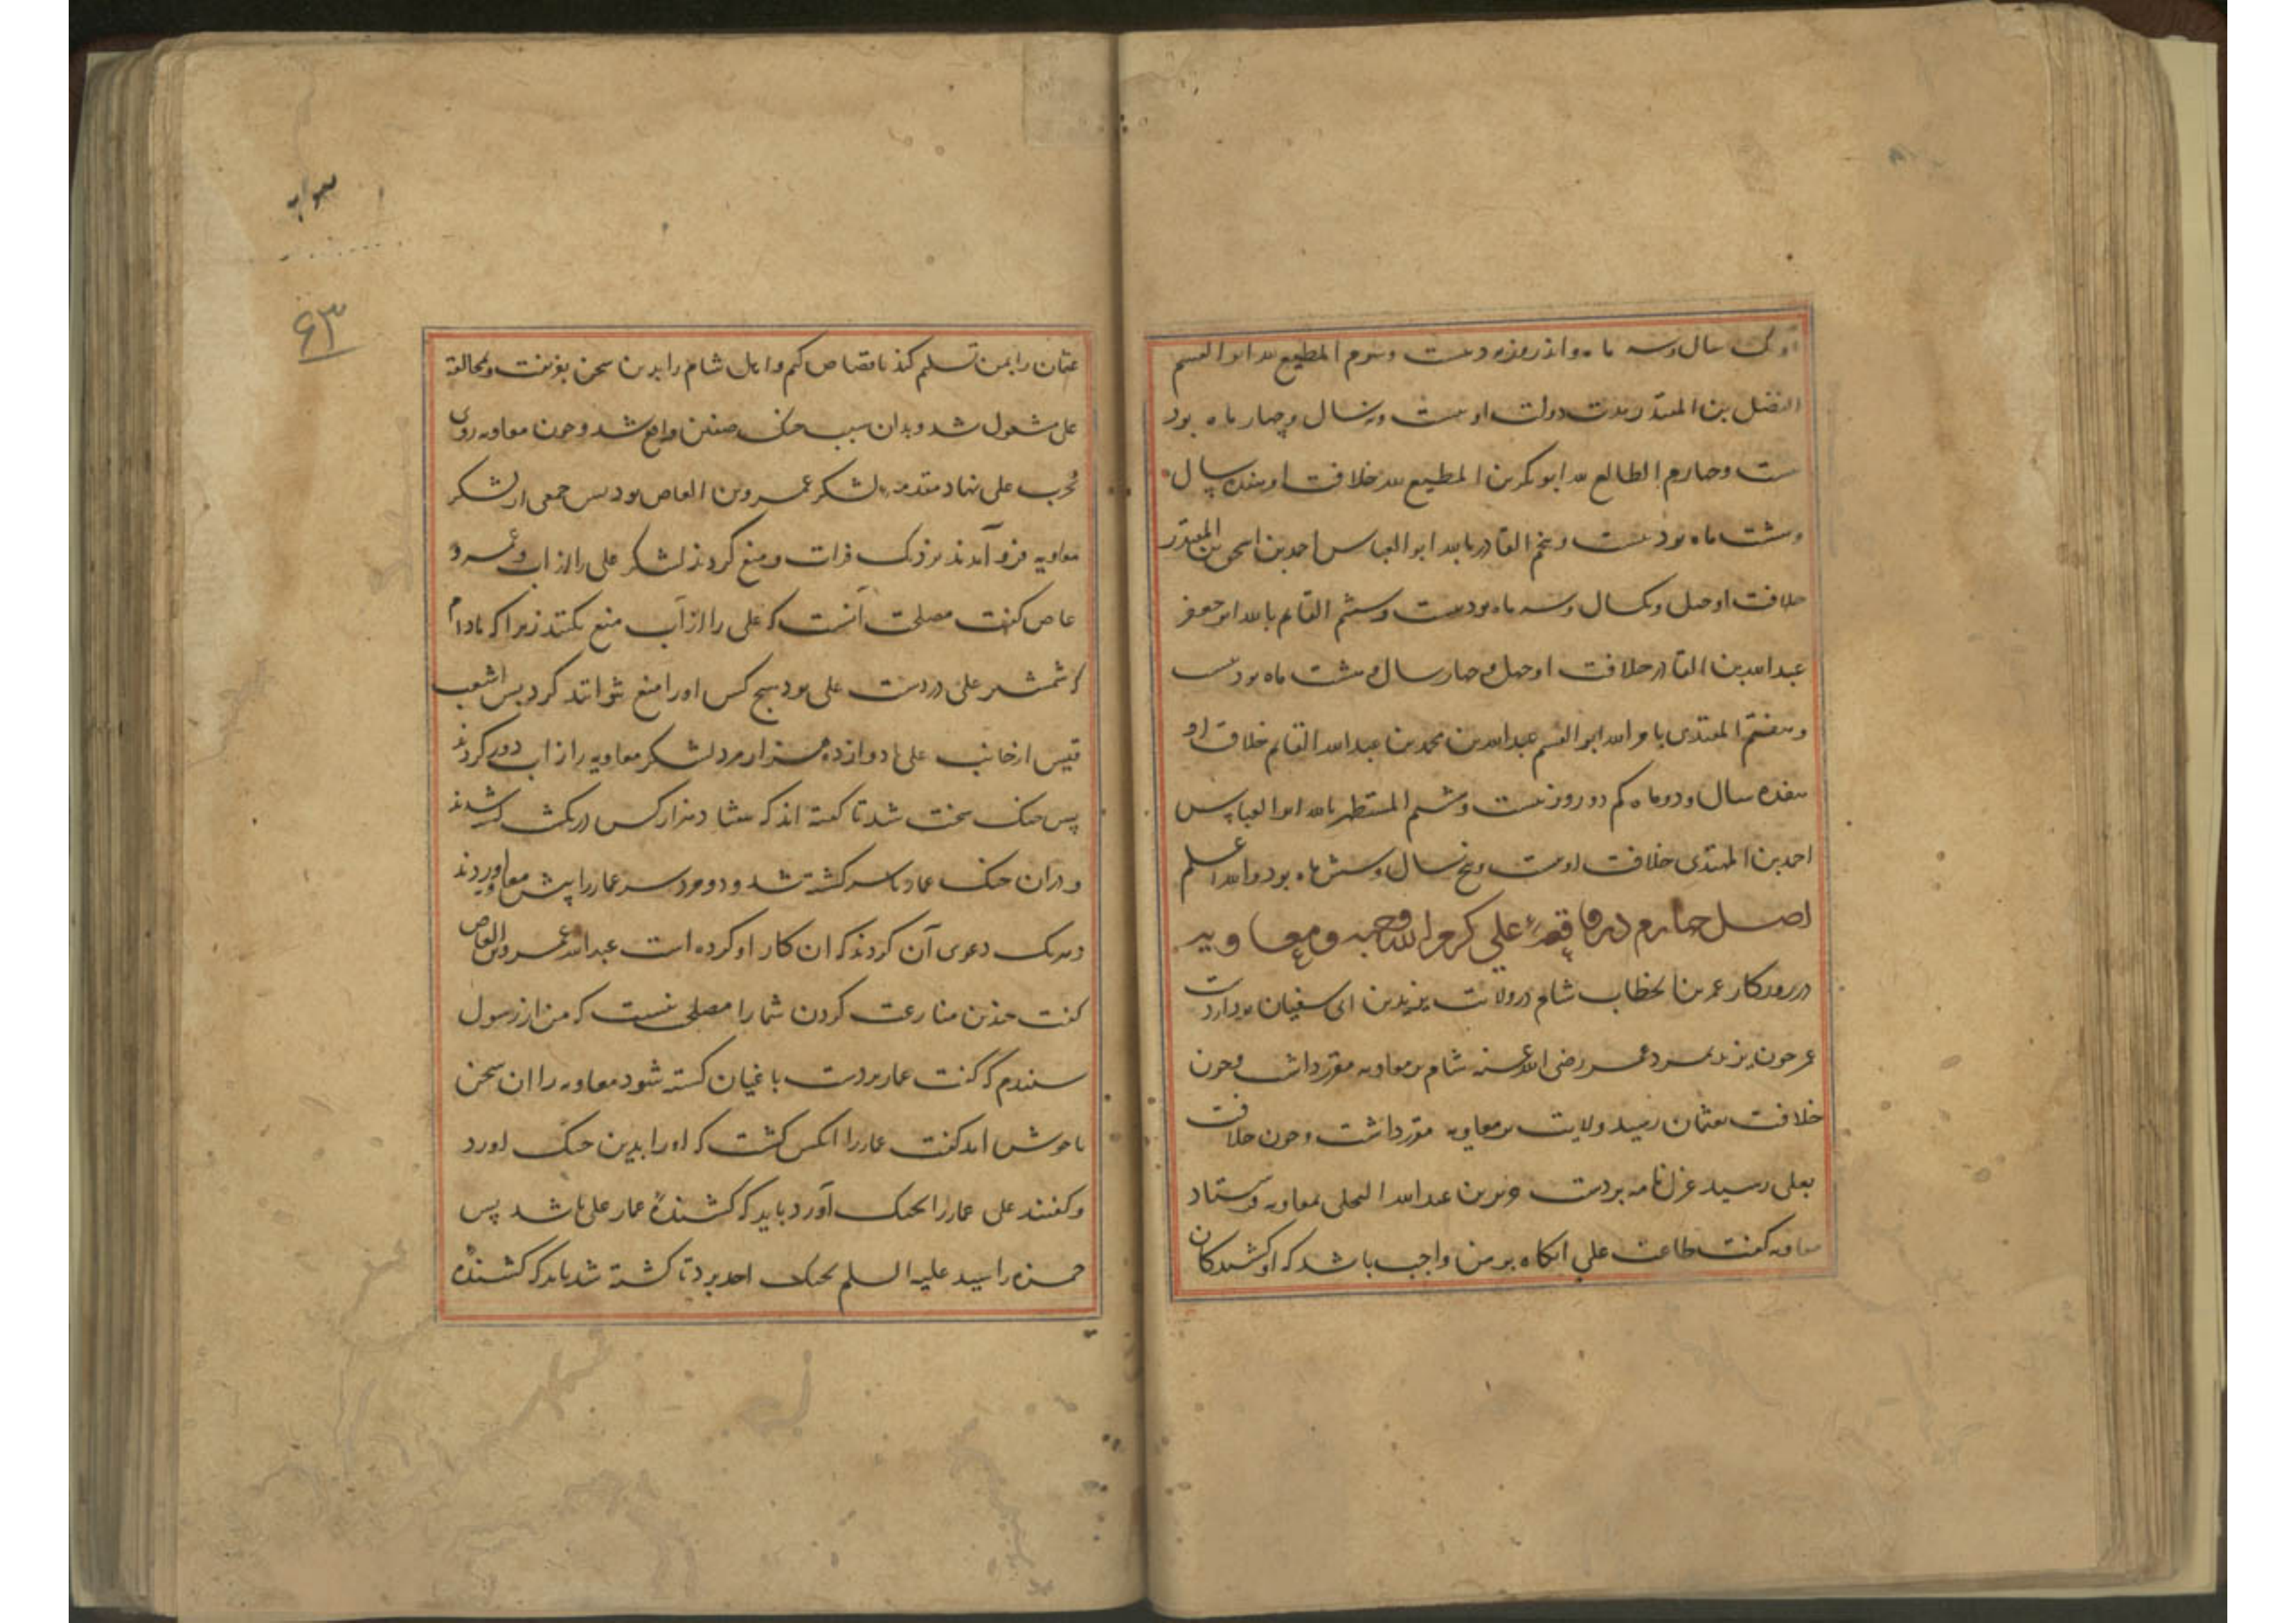 او یک سال و سه ماه و اند روزه و بیست و سوم المطیع لله ابو القسم
الفضل بن المقتدر مدت دولت او بیست و نه سال و چهار ماه بود
بیست و چهارم الطالع لله ابو بکر بن المطیع لله خلافت او هفده سال
و هشت ماه بود بیست و پنجم القادر بالله ابو العباس احمد بن اسحق بن المقتدر
خلافت او چهل و یکسال و سه ماه بود بیست و ششم القایم بالله ابو جعفر
عبدالله بن القادر خلافت او چهل و چهار سال و هشت ماه بود بیست
و هفتم المقتدی بامر الله ابو القسم عبدالله بن محمد بن عبدالله القایم خلافت او
هفده سال و دو ماه کم دو روز بیست و هشتم المستظهر بالله ابو العباس
احمد بن المهتدی خلافت او بیست و پنج سال و شش ماه بود والله اعلم
اصل چهارم در واقعهٔ علی کرم الله وجهه و معاویه
در روزکار عمر بن الخطاب شام در ولایت یزید بن ابی سفیان بود
عمر چون یزید بمرد عمر رضی الله عنه شام بر معاویه مقرر داشت و چون
خلافت بعثمان رسید ولایت بر معاویه مقرر داشت و چون خلافت
بعلی رسید عزل نامه بردست جریر بن عبدالله البجلی بمعاویه فرستاد
معاویه کفت طاعت علی انکاه بر من واجب باشد که او کشندکان
عثمان را بمن تسلیم کند تا قصاص کنم و اهل شام را بدین سخن بفریفت و بمخالفة
علی مشغول شد و بدان سبب جنک صفین واقع شد و چون معاویه روی
بحرب علی نهاد مقدمه لشکر عمرو بن العاص بود پس جمعی از لشکر
معاویه فرو آمدند نزدیک فرات و منع کردند لشکر علی را از اب و عمرو
عاص کفت مصلحت آنست که علی را از آب منع نکنند زیرا که مادام
که شمشیر علی در دست علی بود هیچ کس او را منع نتواند کرد پس اشعب
قیس از جانب علی با دوازده هزار مرد لشکر معاویه را از اب دور کردند
پس جنک سخت شد تا کفته اند که هفتاد هزار کس در یکشب کشته شدند
و در ان جنک عمار یاسر کشته شد و دو مرد سر عمار را پیش معاویه اوردند
و هریک دعوی آن کردند که ان کار او کرده است عبدالله عمرو بن العاص
کفت چندین منازعت کردن شما را مصلحتی نیست که من از رسول
شنیدم که کفت عمار بردست باغیان کشته شود معاویه را ان سخن
ناخوش امد کفت عمار را انکس کشت که او را بدین جنک اورد
و کفتند علی عمار را بجنک آورد باید که کشندهٔ عمار علی باشد پس
حمزه را سید علیه السلم بجنک احد برد تا کشته شد باید که کشندهٔ
۶۳